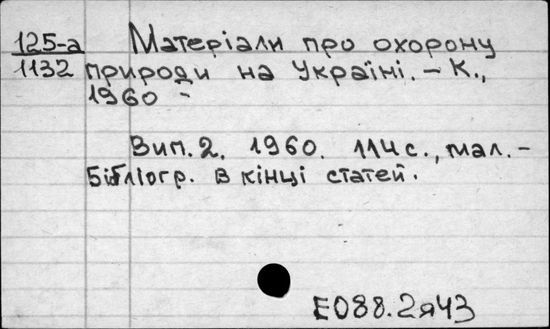 125-а Матеріали про охорону
1132 природи на Україні. – К.,
1960 –
Вип. 2. 1960. 114 с., мал. –
Бібліогр. в кінці статей.
Е088.2я43